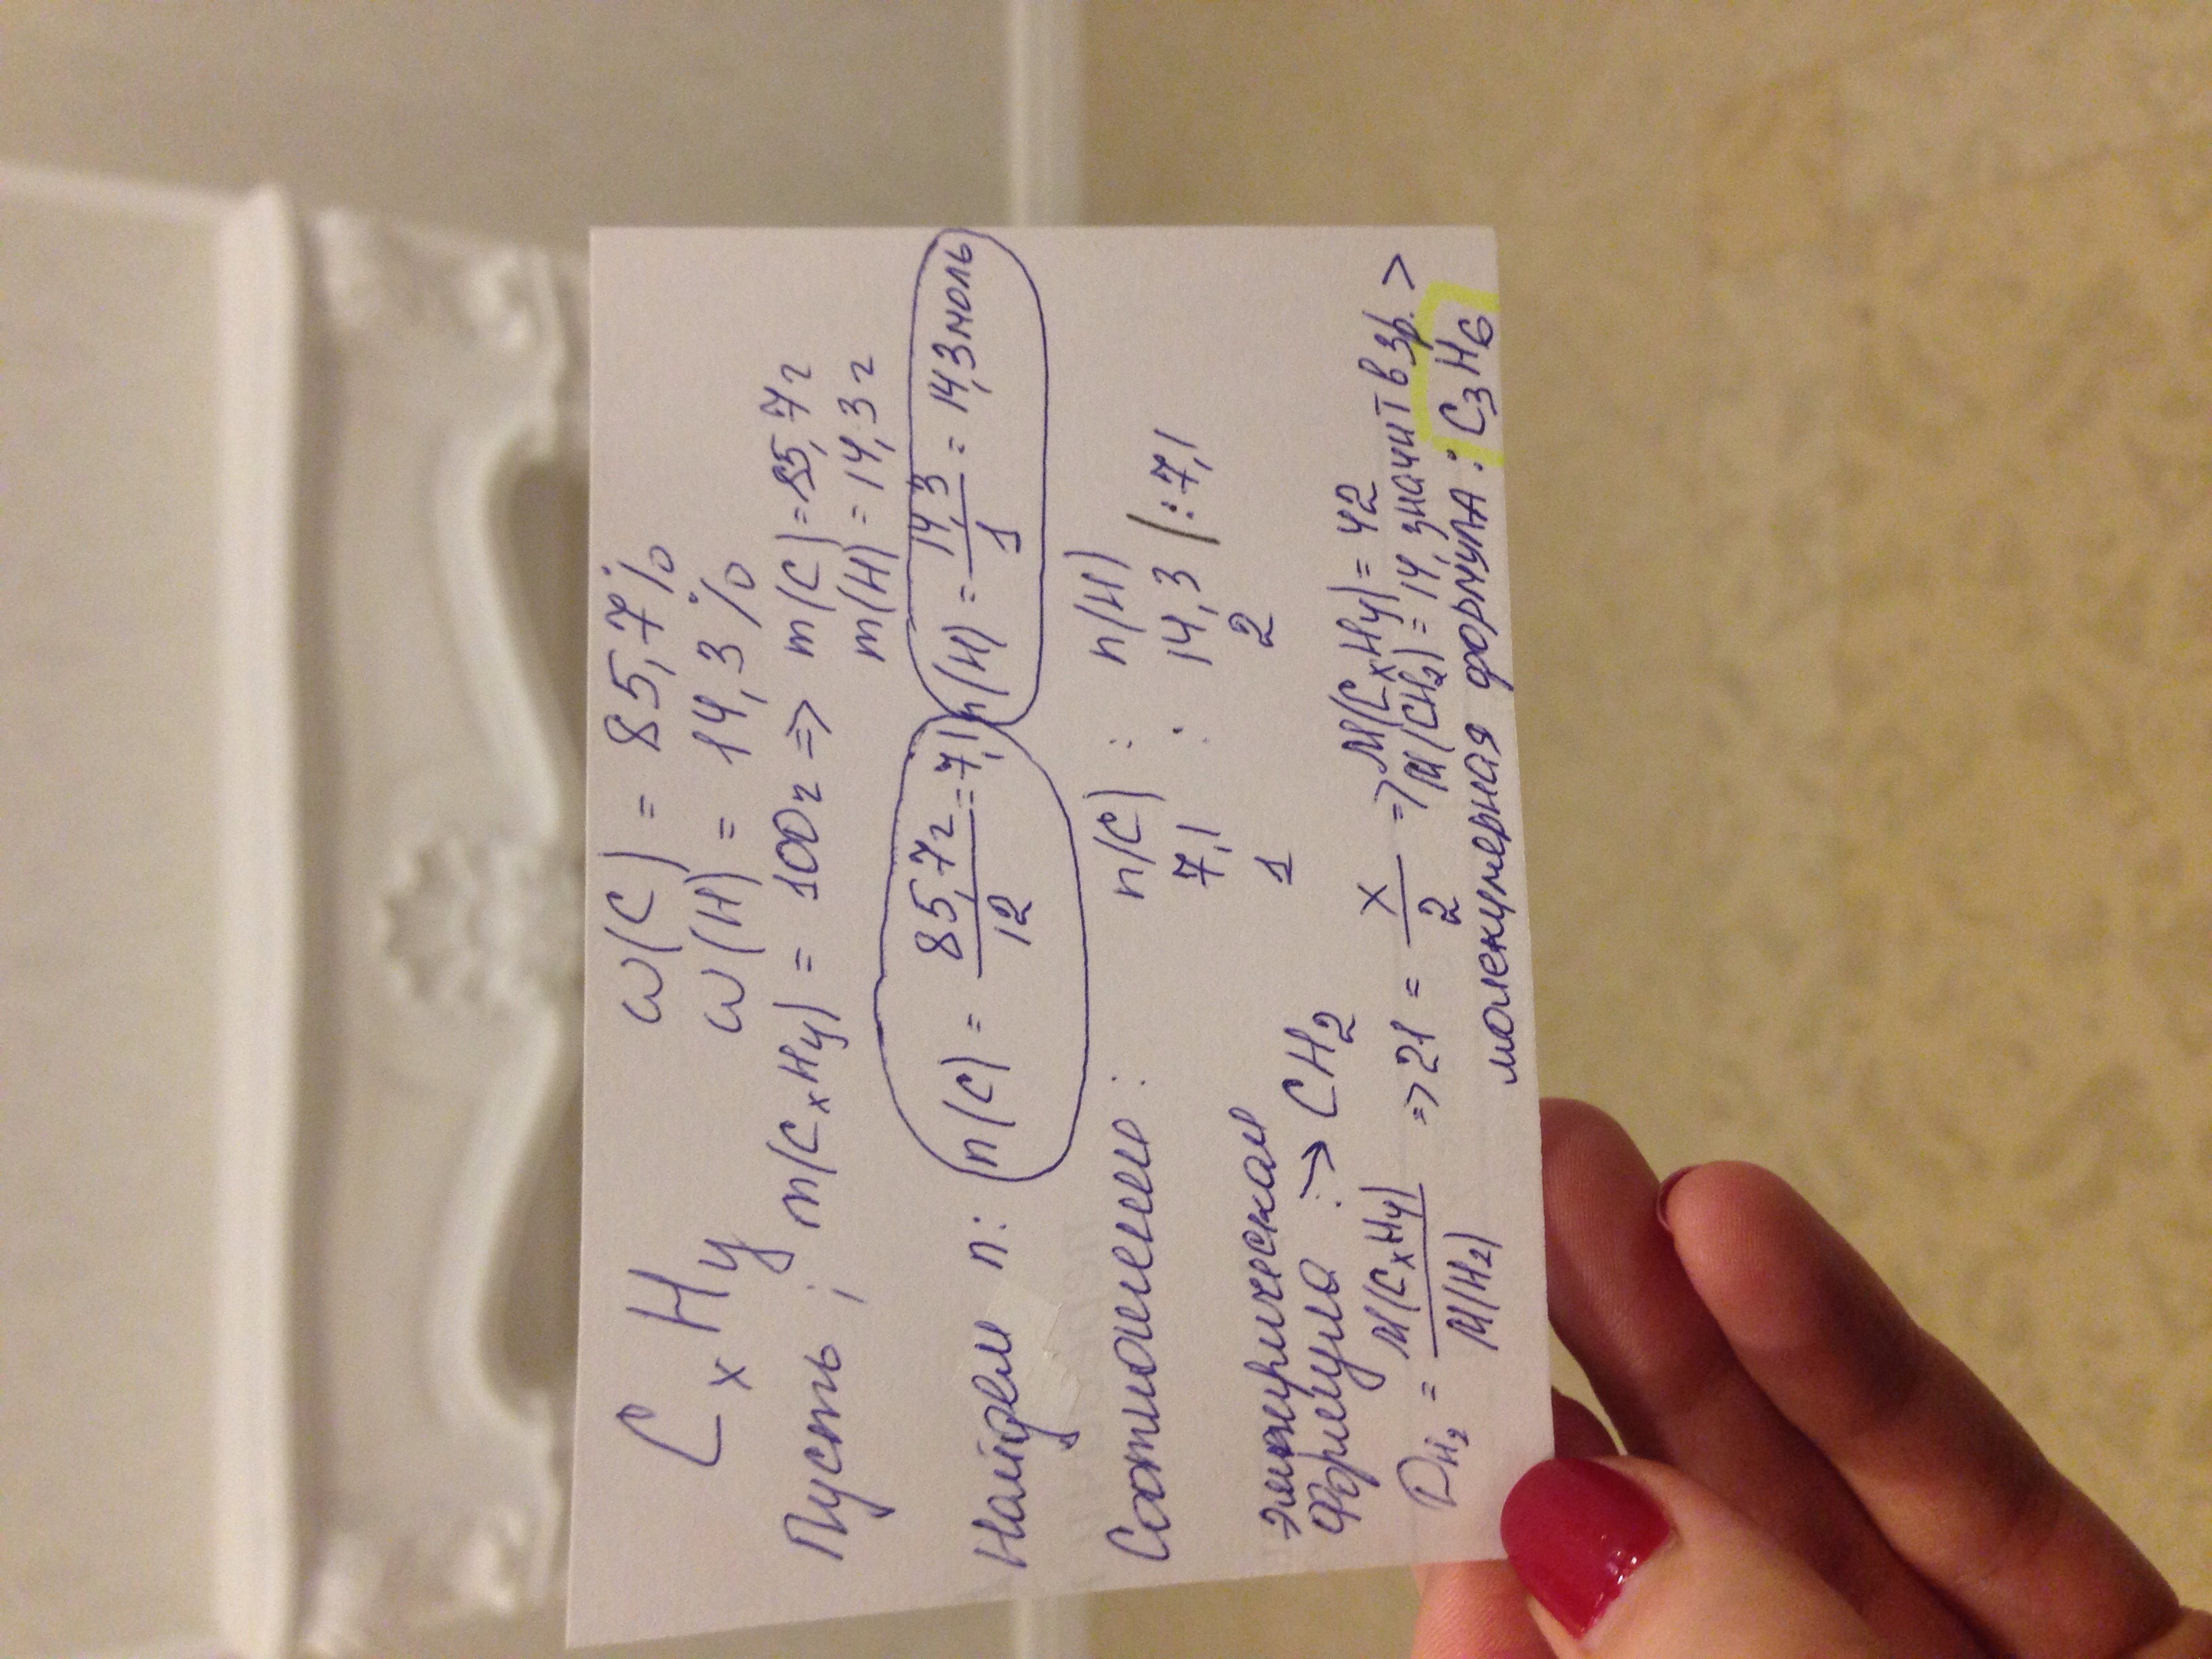 CxHy ω(C) = 85,7%
ω(H) = 14,3%
Пусть; m(CxHy) = 100г => m(C) = 85,7г
m(H) = 14,3г
Найдем n: n(C) = 85,7г/12 = 7,1 n(H) = 14,3/1 = 14,3 моль
Соотношение: n(C) : n(H)
7,1 : 14,3 /:7,1
1 2
эмпирическая
формула :→ CH2
DH2 = M(CxHy)/M(H2) => 21 = x/2 => M(CxHy) = 42
M(CH2) = 14, значит в 3р. >
молекулярная формула: C3H6